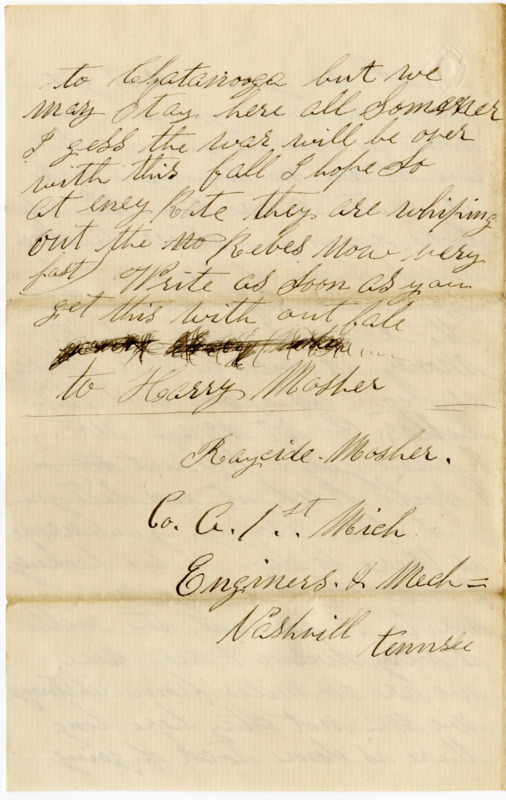 to Chatanooga but we
may Stay here all Somemer
I gess the war will be over
with this fall I hope So
at eney Rate they are whiping
out the Rebes Now very
fast Write as Soon as you
get this with out fale
to Harry Mosher
Rayside Mosher.
Co. G. 1st. Mich
Enginers. & Mech=
Nashvill tennsee